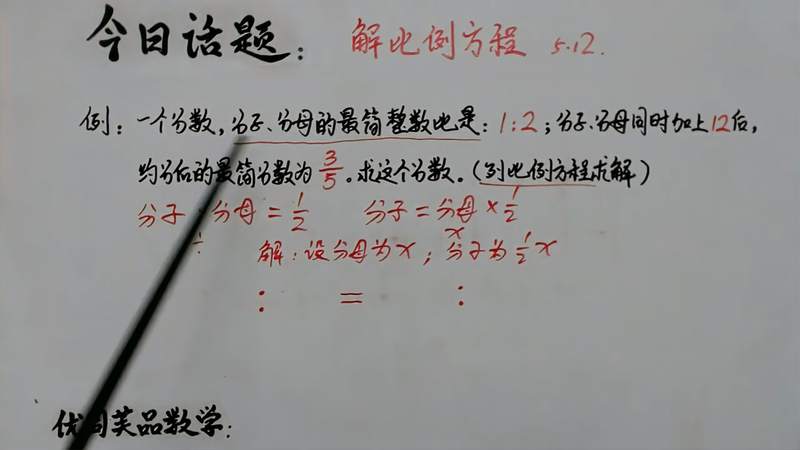 今日话题： 解比例方程 5.12.
例：一个分数，分子、分母的最简整数比是：1:2；分子、分母同时加上12后，
约分后的最简分数为3/5。求这个分数。(列比例方程求解)
分子 分母 = 1/2 分子 = 分母 × 1/2
÷ x
解：设分母为x；分子为1/2 x
: = :
优 芙品数学：